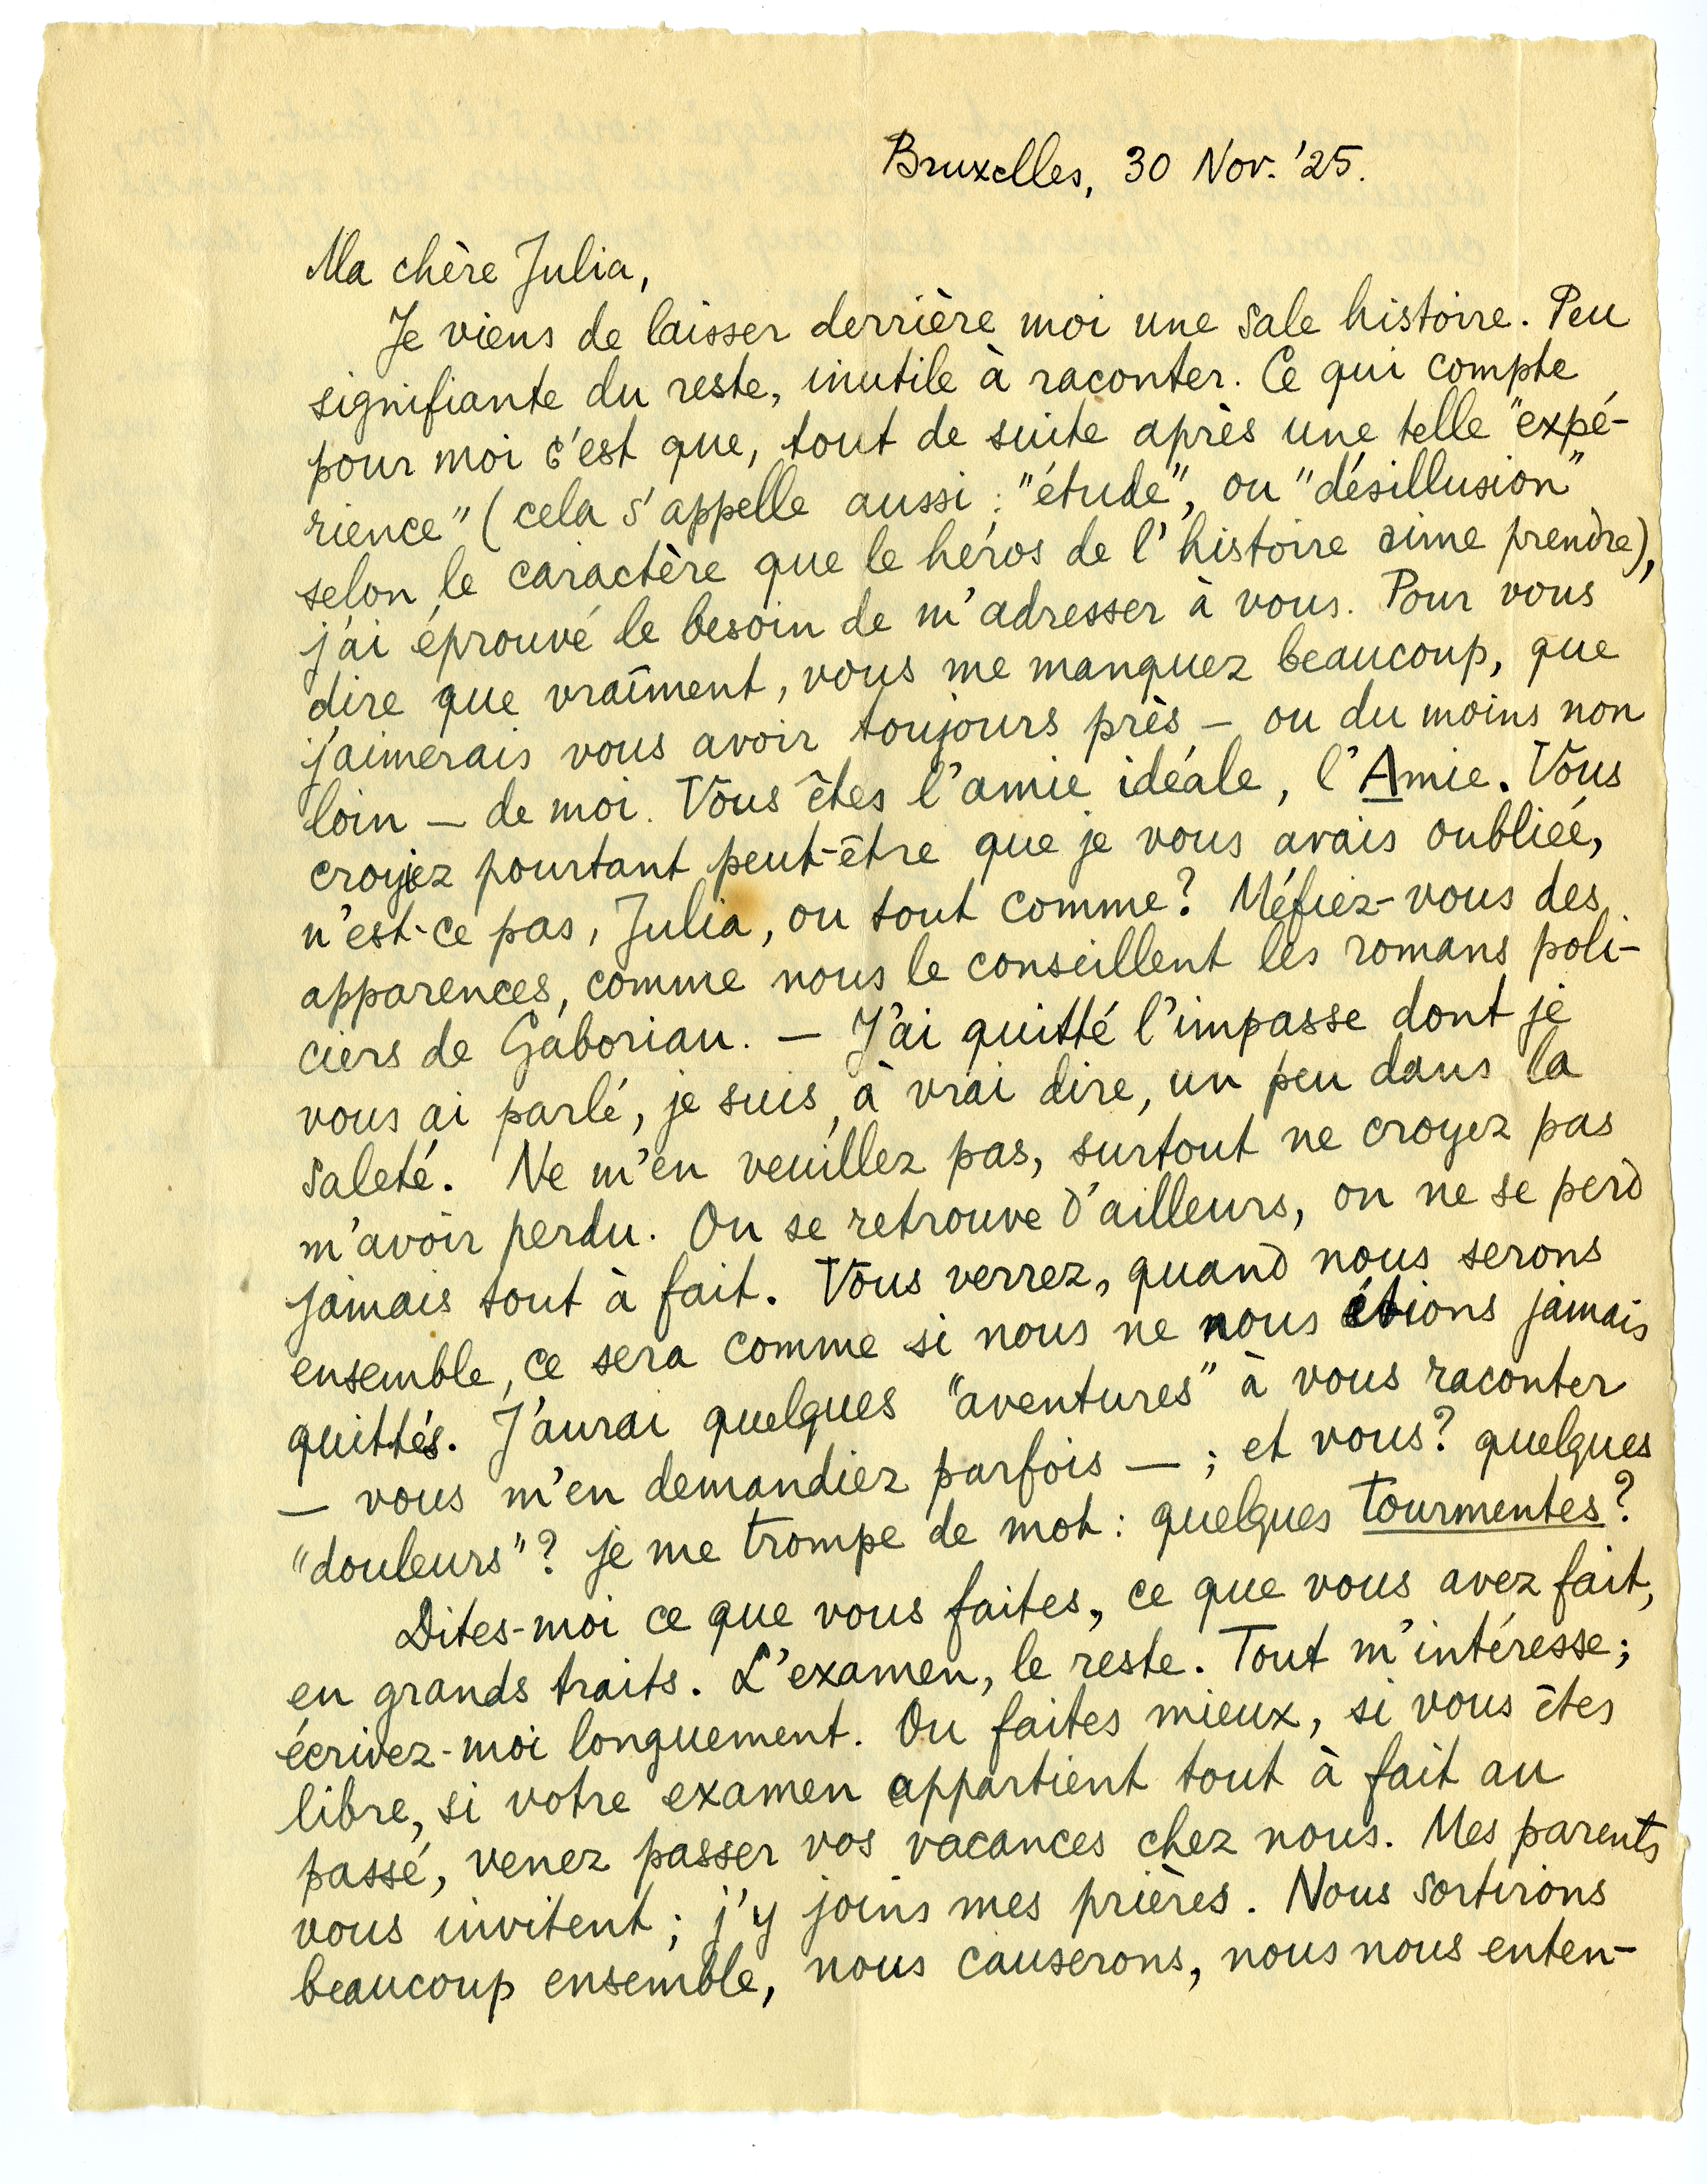 Bruxelles, 30 Nov. '25.
Ma chère Julia,
Je viens de laisser derrière moi une sale histoire. Peu
signifiante du reste, inutile à raconter. Ce qui compte
pour moi c'est que, tout de suite après une telle "expé-
rience" (cela s'appelle aussi : "étude", ou "désillusion"
selon le caractère que le héros de l'histoire aime prendre),
j'ai éprouvé le besoin de m'adresser à vous. Pour vous
dire que vraîment, vous me manquez beaucoup, que
j'aimerais vous avoir toujours près — ou du moins non
loin — de moi. Vous êtes l'amie idéale, l'Amie. Vous
croyiez pourtant peut-être que je vous avais oubliée,
n'est-ce pas, Julia, ou tout comme? Méfiez-vous des
apparences, comme nous le conseillent les romans poli-
ciers de Gaboriau. — J'ai quitté l'impasse dont je
vous ai parlé, je suis, à vrai dire, un peu dans la
saleté. Ne m'en veuillez pas, surtout ne croyez pas
m'avoir perdu. On se retrouve d'ailleurs, on ne se perd
jamais tout à fait. Vous verrez, quand nous serons
ensemble, ce sera comme si nous ne nous étions jamais
quittés. J'aurai quelques "aventures" à vous raconter
— vous m'en demandiez parfois — ; et vous? quelques
"douleurs"? je me trompe de mot : quelques tourmentes?
Dites-moi ce que vous faites, ce que vous avez fait,
en grands traits. L'examen, le reste. Tout m'intéresse;
écrivez-moi longuement. Ou faites mieux, si vous êtes
libre, si votre examen appartient tout à fait au
passé, venez passer vos vacances chez nous. Mes parents
vous invitent ; j'y joins mes prières. Nous sortirons
beaucoup ensemble, nous causerons, nous nous enten-